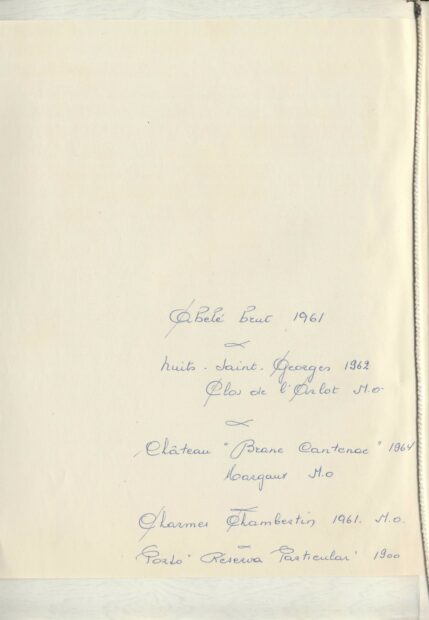 Abelé brut 1961
Nuits-Saint-Georges 1962
Clos de l'Arlot M.O
Château "Brane Cantenac" 1964
Margaux M.O
Charmes Chambertin 1961. M.O.
Porto "Réserva Particular" 1900